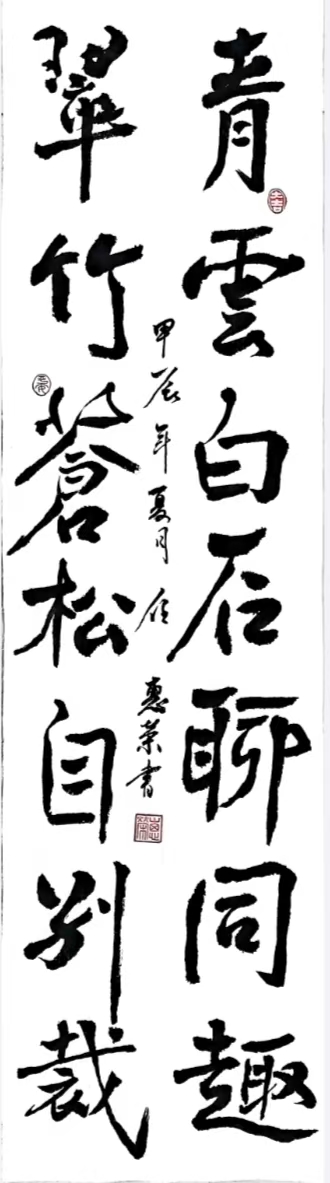 青雲白石聊同趣
翠竹蒼松自别裁
甲辰年夏月任惠荣書